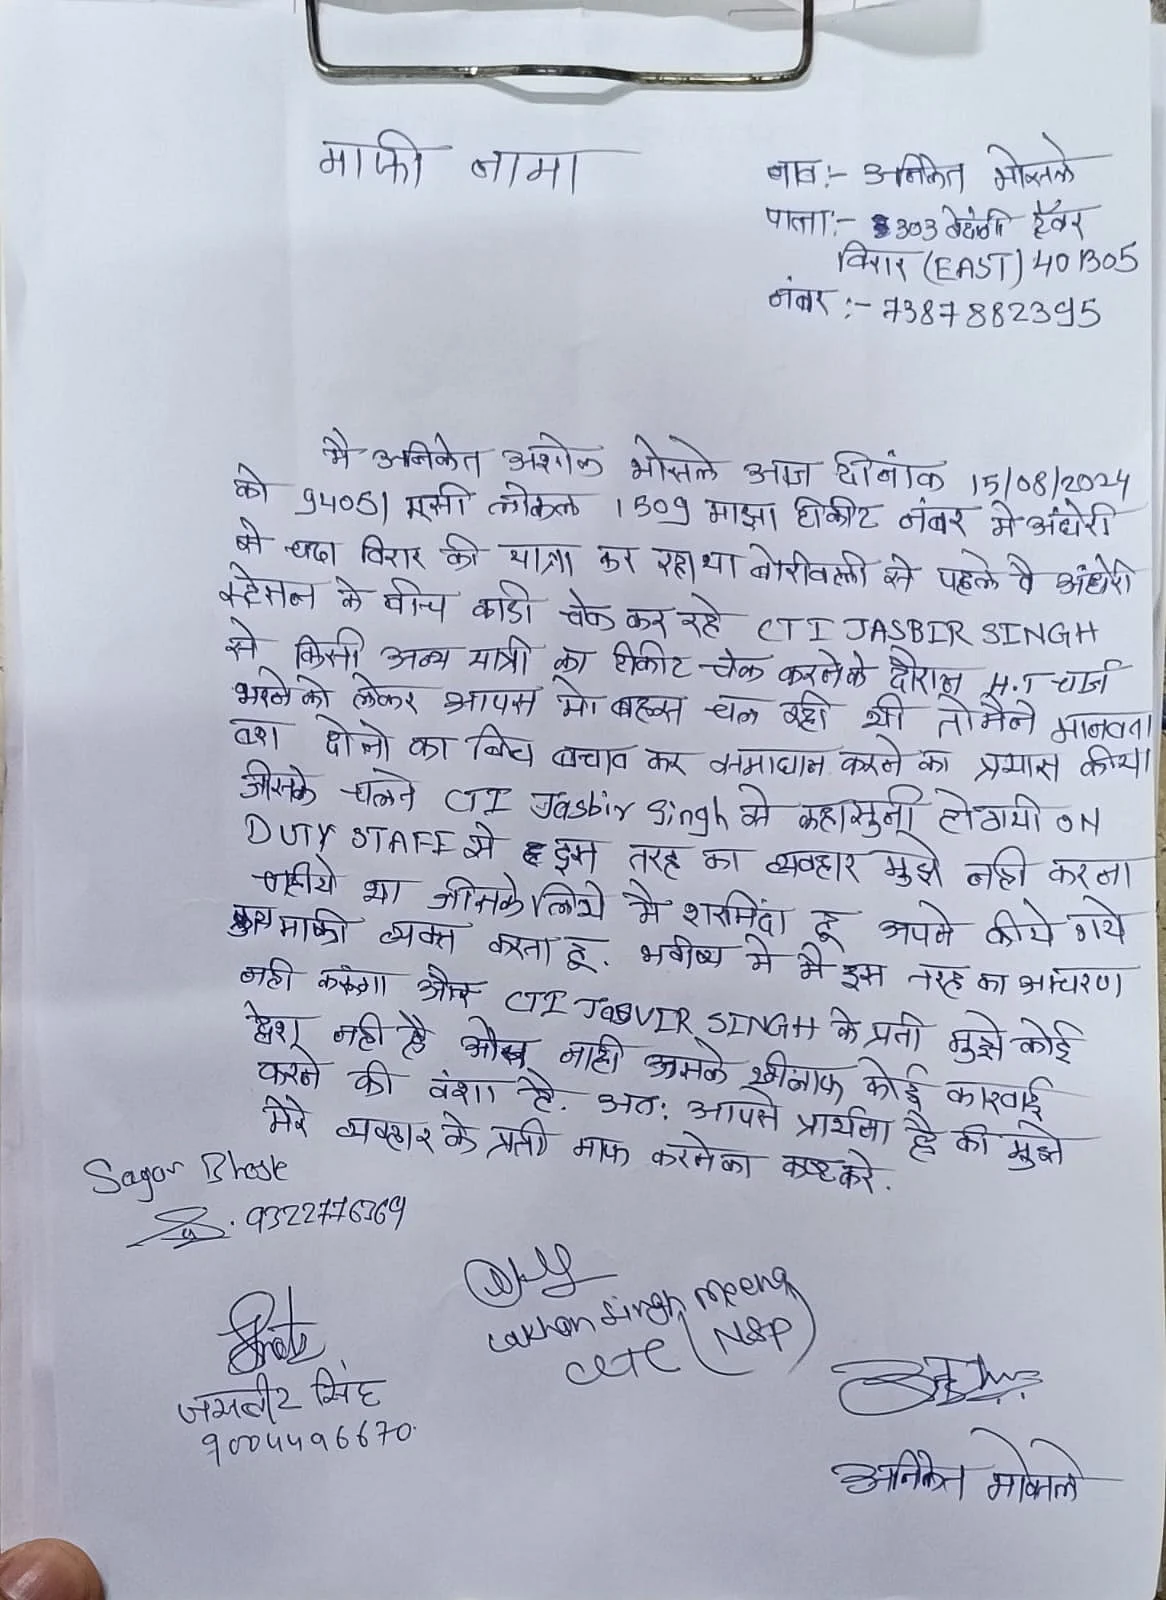 माफी नामा
नाव:- अनिकेत भोसले
पाता:- 303 टॅवर
विरार (EAST) 401305
नंबर :- 7387882395
मै अनिकेत अशोक भोसले आज दीनांक 15/08/2024
को 94051 एसी लोकल 1509 माझा टीकीट नंबर मे अंधेरी
से चढा विरार की यात्रा कर रहा था बोरीवली से पहले वे अंधेरी
स्टेसन के बीच काडी चेक कर रहे CTI JASBIR SINGH
से किसी अन्य यात्री का टीकीट चेक करनेके दौरान M.T चार्ज
भरने को लेकर आपस मे बहस चल रही थी तो मैने मानवता
वश दोनो का बिच बचाव कर समाधान करने का प्रयास कीया
जीसके चलते CTI Jasbir Singh से कहासुनी होगयी ON
DUTY STAFF से इस तरह का व्यवहार मुझे नही करना
चहीये था जीसके लिये मै शरमिंदा हू अपने कीये गये
माफी व्यक्त करता हू. भवीष्य मे मै इस तरह का आचरण
नही करूंगा और CTI JASVIR SINGH के प्रती मुझे कोई
द्वेश नही है और नाही उसके खीलाफ कोई कारवाई
करने की मंशा है. अत: आपसे प्रार्थना है की मुझे
मेरे व्यवहार के प्रती माफ करनेका कष्ट करे.
Sagar Bhosle
9322776369
Lakhan Singh Meena
(NSP)
जसबीर सिंह
9004496670
अनिकेत भोसले